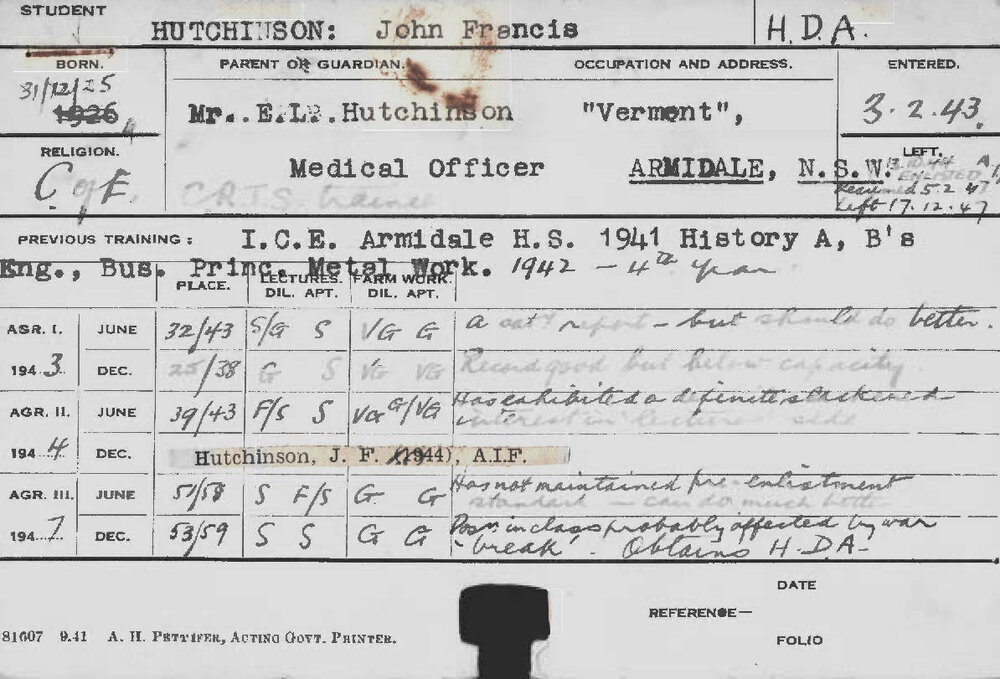 STUDENT
HUTCHINSON: John Francis H.D.A.
BORN. PARENT OR GUARDIAN. OCCUPATION AND ADDRESS. ENTERED.
31/12/25
1926 Mr. E.L. Hutchinson "Vermont", 3.2.43.
RELIGION. LEFT.
C of E. Medical Officer ARMIDALE, N.S.W. 13.10.44 ENLISTED A.I.
C.R.T.S. trainee Resumed 5.2.47
Left 17.12.47
PREVIOUS TRAINING: I.C.E. Armidale H.S. 1941 History A, B's
Eng., Bus. Princ. Metal Work. 1942 - 4th year
PLACE. LECTURES. DIL. APT. FARM WORK. DIL. APT.
AGR. I. JUNE 32/43 S/G S VG G A sat. report - but should do better.
1943 DEC. 25/38 G S VG VG Record good but below capacity.
AGR. II. JUNE 39/43 F/S S VG G/VG Has exhibited a definite slackened
interest in lecture side
1944 DEC. Hutchinson, J. F. (1944), A.I.F.
AGR. III. JUNE 51/58 S F/S G G Has not maintained pre-enlistment
standard - can do much better
1947 DEC. 53/59 S S G G Posn. in class probably affected by war
'break'. Obtains H.D.A.
DATE
REFERENCE—
FOLIO
81607 9.41 A. H. PETTIFER, ACTING GOVT. PRINTER.